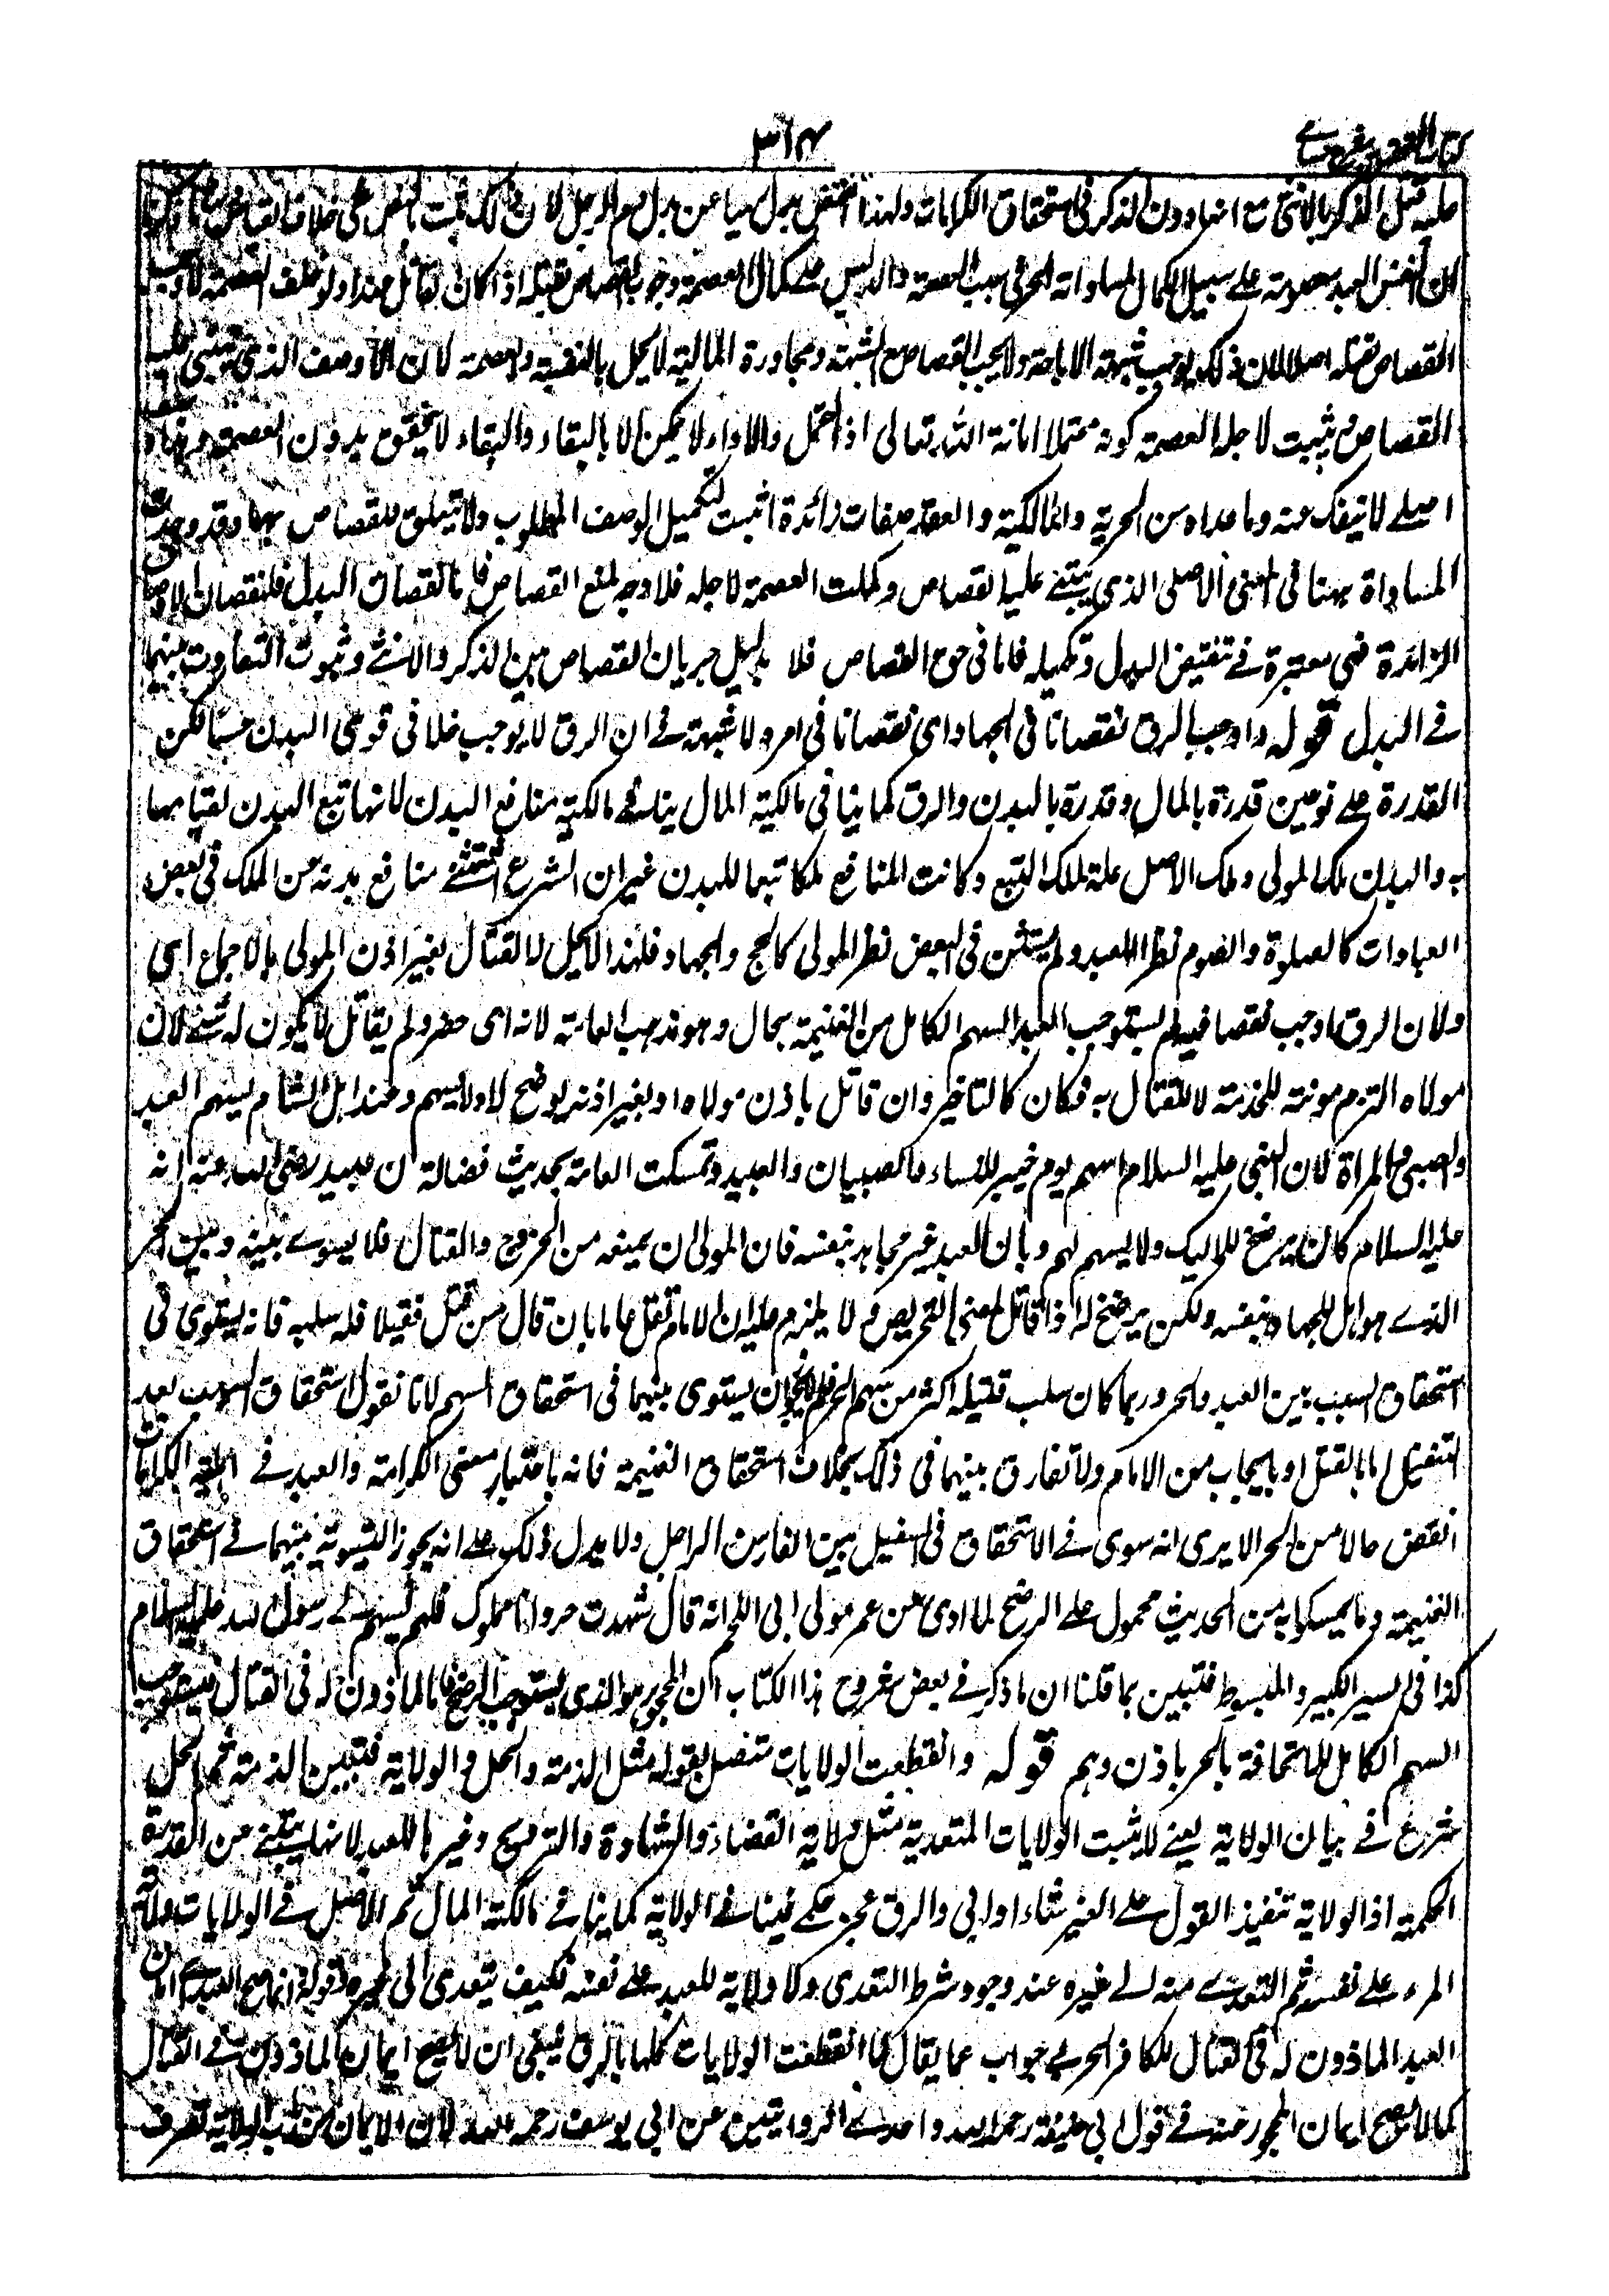 ٣١٤
عليه قتل الذكر بالانثى مع انها دون الذكر فى استحقاق الكرامات ولهذا انتقص بدل دمها عن بدل دم الرجل لان ذلك ثبت بالنص على خلاف القياس
ان نفس العبد معصومة على سبيل الكمال لمساواته الحر فى سبب العصمة والدليل على كمال العصمة وجوب القصاص بقتله اذا كان القاتل عبدا ولو خلف العصمة لما وجب
القصاص بقتله اصلا لان ذلك يوجب شبهة الاباحة ولا يجب القصاص مع الشبهة ومجاورة المالية لا يخل بالنفسية والعصمة لان الوصف الذى يبتنى عليه
القصاص ثم يثبت لاجله العصمة كونه متحملا امانة الله تعالى اذ التحمل والاداء لا يمكن الا بالبقاء والبقاء لا يتحقق بدون العصمة
اصلى لا ينفك عنه وما عداه من الحرية والمالكية والعقد صفات زائدة اثبت لتكميل الوصف المطلوب ولا يتعلق القصاص بها وقد وجدت
المساواة ههنا فى المعنى الاصلى الذى يبتنى عليه القصاص وكملت العصمة لاجله فلا وجه لمنع القصاص فاما نقصان البدل فلنقصان الاوصاف
الزائدة فهى معتبرة فى تنقيص البدل وتكميله فاما فى حق القصاص فلا بدليل جريان القصاص بين الذكر والانثى وثبوت التفاوت بينهما
فى البدل قوله واوجب الرق نقصانا فى الجهاد اى نقصانا فى امره لا شبهة فى ان الرق لا يوجب خللا فى قوى البدن حسا لكن
القدرة على نوعين قدرة بالمال وقدرة بالبدن والرق كما ينافى مالكية المال ينافى مالكية منافع البدن لانها تبع البدن لقيامها
به والبدن ملك المولى وملك الاصل علة لملك التبع وكانت المنافع ملكا تبعا للبدن غير ان الشرع استثنى منافع بدنه من الملك فى بعض
العبادات كالصلوة والصوم نظرا للعبد ولم يستثن فى البعض نظرا للمولى كالحج والجهاد فلهذا لا يحل له القتال بغير اذن المولى بالاجماع اى
ولان الرق اوجب نقصا فيه لم يستوجب العبد السهم الكامل من الغنيمة بحال وهو مذهب العامة لانه اى حضر ولم يقاتل لا يكون له شئ لان
مولاه التزم مونته للخدمة لا للقتال به فكان كالتاجر وان قاتل باذن مولاه او بغير اذنه يرضخ له ولا يسهم وعند اهل الشام يسهم العبد
والصبى والمراة لان النبى عليه السلام اسهم يوم خيبر للنساء والصبيان والعبيد وتمسكت العامة بحديث فضالة بن عبيد رضى الله عنه انه
عليه السلام كان يرضخ للمماليك ولا يسهم لهم وبان العبد غير مجاهد بنفسه فان للمولى ان يمنعه من الخروج والقتال فلا يسوى بينه وبين الحر
الذى هو اهل للجهاد بنفسه ولكن يرضخ له اذا قاتل لمعنى التحريض ولا يلزم عليه ان الامام نفل عاما بان قال من قتل قتيلا فله سلبه فانه يستوى فى
استحقاق السلب بين العبد والحر وربما كان سلب قتيله اكثر من سهم الحر فلم لا يجوز ان يستوى بينهما فى استحقاق السهم لانا نقول استحقاق السلب بعد
التنفيل اما بالقتل او بايجاب من الامام ولا تفارق بينهما فى ذلك بخلاف استحقاق الغنيمة فانه باعتبار معنى الكرامة والعبد فى اهلية الكرامات
انقص حالا من الحر الا يرى انه سوى فى الاستحقاق فى التنفيل بين الفارس الراجل ولا يدل ذلك على انه يجوز التسوية بينهما فى استحقاق
الغنيمة وما تمسكوا به من الحديث محمول على الرضخ لما روى عن عمر مولى ابى اللحم انه قال شهدت حر وانا مملوك فلم يسهم لى رسول الله عليه السلام
كذا فى السير الكبير والمبسوط فتبين بما قلنا ان ما ذكر فى بعض شروح هذا الكتاب ان المحجور هو الذى يستوجب الرضخ فاما الماذون له فى القتال فيستوجب
السهم الكامل للالتحاقه بالحر باذن وهم قوله وانقطعت الولايات متصل بقوله مثل الذمة والحل والولاية فتبين الذمة ثم الحل
شرع فى بيان الولاية يعنى لا يثبت الولايات المتعدية مثل ولاية القضاء والشهادة والتزويج وغيرها للعبد لانها تبتنى عن القدرة
الحكمية اذ الولاية تنفيذ القول على الغير شاء او ابى والرق عجز حكمى فينافى الولاية كما ينافى مالكية المال ثم الاصل فى الولايات ولاية
المرء على نفسه ثم التعدى منه الى غيره عند وجود شرط التعدى ولا ولاية للعبد على نفسه فكيف يتعدى الى غيره قوله انما صح العبد امان
العبد الماذون له فى القتال للكافر الحربى جواب عما يقال لما انقطعت الولايات كلها بالرق ينبغى ان لا يصح ايمان الماذون فى القتال
كما لا يصح ايمان المحجور عنه فى قول ابى حنيفة رحمه الله واحدى الروايتين عن ابى يوسف رحمه الله لان الايمان من باب الولاية تصرف